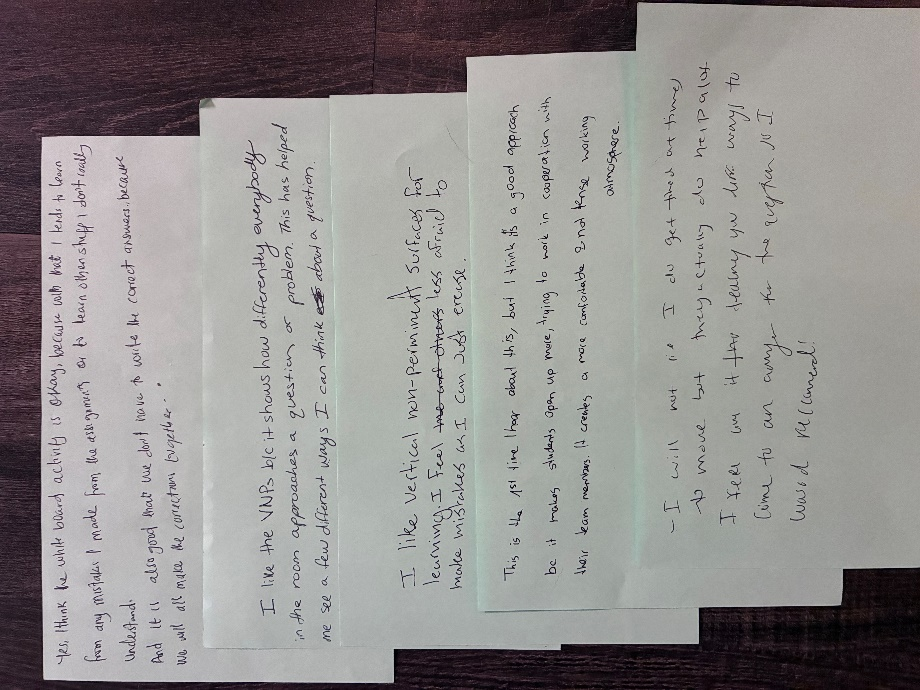 Yes, I think the white board activity is okay, because with that I tends to learn
from any mistakes I made from the assignments or to learn other stuff I don't really
Understand.
And it is also good that we don't have to write the correct answers, because
We will all make the corrections together.
I like the VNPs b/c it shows how differently everybody
in the room approaches a question or problem. This has helped
me see a few different ways I can think about a question.
I like vertical non-perminent surfaces for
learning I feel less afraid to
make mistakes as I can just erease.
This is the 1st time I hear about this, but I think it's a good approach
bc it makes students open up more, trying to work in cooperation with
their team members. It creates a more comfortable & not tense working
atmosphere.
- I will not lie I do get tired at times
to move but they actually do help alot.
I feel as it has you diff ways to
Come to an answer for the question
would reccomend!